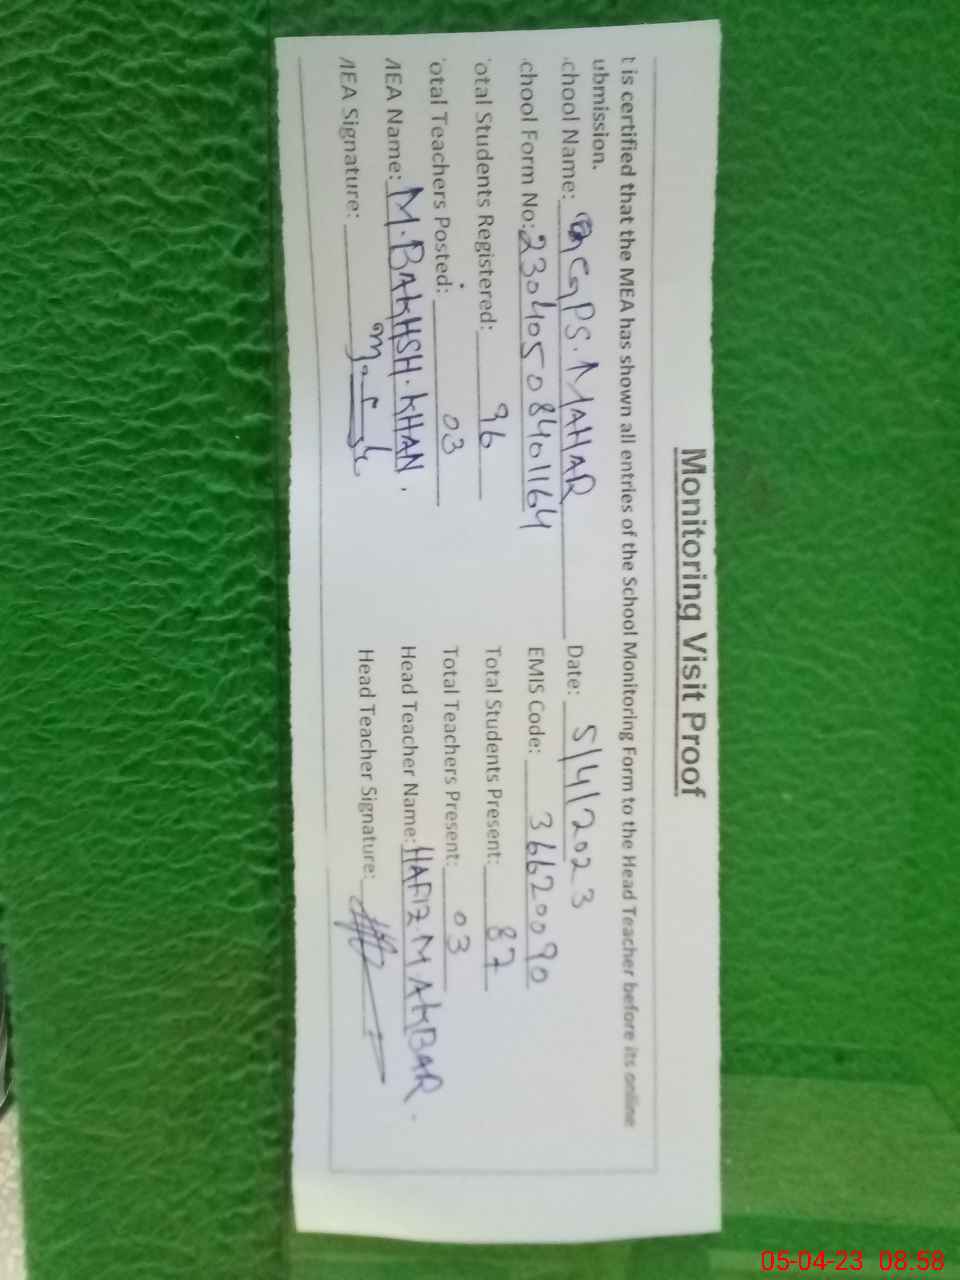 Monitoring Visit Proof
t is certified that the MEA has shown all entries of the School Monitoring Form to the Head Teacher before its online
ubmission.
chool Name: GPS. MAHAR Date: 5/4/2023
chool Form No: 230405084401164 EMIS Code: 36620090
otal Students Registered: 96 Total Students Present: 87
otal Teachers Posted: 03 Total Teachers Present: 03
MEA Name: M. BAKHSH. KHAN. Head Teacher Name: HAFIZ. M AKBAR.
MEA Signature: Head Teacher Signature:
05-04-23 08:58